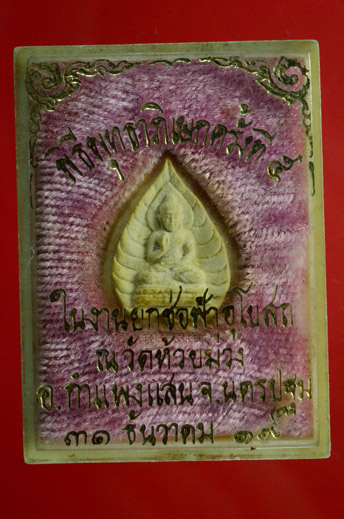 พิธีพุทธาภิเษกครั้งที่ ๙
ในงานยกช่อฟ้าอุโบสถ
ณ วัดห้วยม่วง
อ.กำแพงแสน จ.นครปฐม
๓๑ ธันวาคม ๑๙